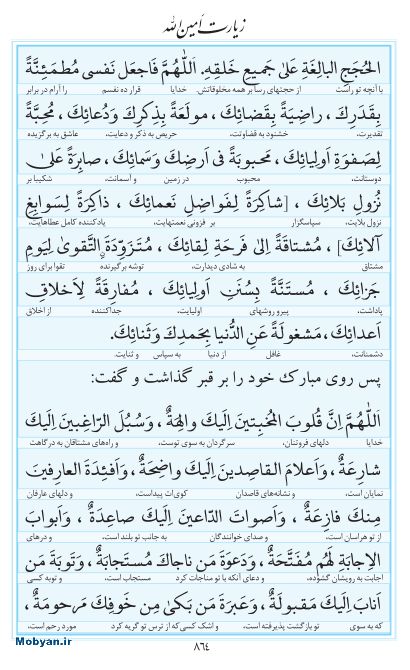 زیارت امین الله
الحُجَجِ البالِغَةِ عَلىٰ جَمیعِ خَلقِهِ. اَللّٰهُمَّ فَاجعَل نَفسی مُطمَئِنَّةً
با آنچه تو راست از حجتهای رسا بر همه مخلوقاتش. خدایا قرار ده نفسم را آرام در برابر
بِقَدَرِكَ ، راضِیَةً بِقَضائِكَ ، مولَعَةً بِذِكرِكَ وَدُعائِكَ ، مُحِبَّةً
تقدیرت، خشنود به قضاوتت، حریص به ذکر و دعایت، عاشق به برگزیده
لِصَفوَةِ اَولِیائِكَ ، مَحبوبَةً فی اَرضِكَ وَسَمائِكَ ، صابِرَةً عَلىٰ
دوستانت، محبوب در زمین و آسمانت، شکیبا بر
نُزولِ بَلائِكَ ، [شاكِرَةً لِفَواضِلِ نَعمائِكَ ، ذاكِرَةً لِسَوابِغِ
نزول بلایت، سپاسگزار بر فزونی نعمتهایت، یادکننده کامل عطاهایت،
آلائِكَ] ، مُشتاقَةً اِلىٰ فَرحَةِ لِقائِكَ ، مُتَزَوِّدَةً التَّقوىٰ لِیَومِ
مشتاق به شادی دیدارت، توشه برگیرنده تقوا برای روز
جَزائِكَ ، مُستَنَّةً بِسُنَنِ اَولِیائِكَ ، مُفارِقَةً لِاَخلاقِ
پاداشت، پیرو روشهای اولیایت، جداکننده از اخلاق
اَعدائِكَ، مَشغولَةً عَنِ الدُّنیا بِحَمدِكَ وَثَنائِكَ.
دشمنانت، غافل از دنیا به سپاس و ثنایت.
پس روی مبارک خود را بر قبر گذاشت و گفت:
اَللّٰهُمَّ اِنَّ قُلوبَ المُخبِتینَ اِلَیكَ والِهَةٌ ، وَسُبُلَ الرّاغِبینَ اِلَیكَ
خدایا دلهای فروتنان، سرگردان به سوی توست، و راه‌های مشتاقان به درگاهت
شارِعَةٌ ، وَاَعلامَ القاصِدینَ اِلَیكَ واضِحَةٌ ، وَاَفئِدَةَ العارِفینَ
نمایان است، و نشانه‌های قاصدان کوی‌ات پیداست، و دلهای عارفان
مِنكَ فازِعَةٌ ، وَاَصواتَ الدّاعینَ اِلَیكَ صاعِدَةٌ ، وَاَبوابَ
از تو هراسان است، و صدای خوانندگان به جانب تو بلند است، و درهای
الاِجابَةِ لَهُم مُفَتَّحَةٌ ، وَدَعوَةَ مَن ناجاكَ مُستَجابَةٌ ، وَتَوبَةَ مَن
اجابت به رویشان گشوده، و دعای آنکه با تو مناجات کرد مستجاب است، و توبه کسی
اَنابَ اِلَیكَ مَقبولَةٌ ، وَعَبرَةَ مَن بَكىٰ مِن خَوفِكَ مَرحومَةٌ ،
که به سوی تو بازگشت پذیرفته است، و اشک کسی که از ترس تو گریه کرد مورد رحم است،
Mobyan.ir
٨٦٤